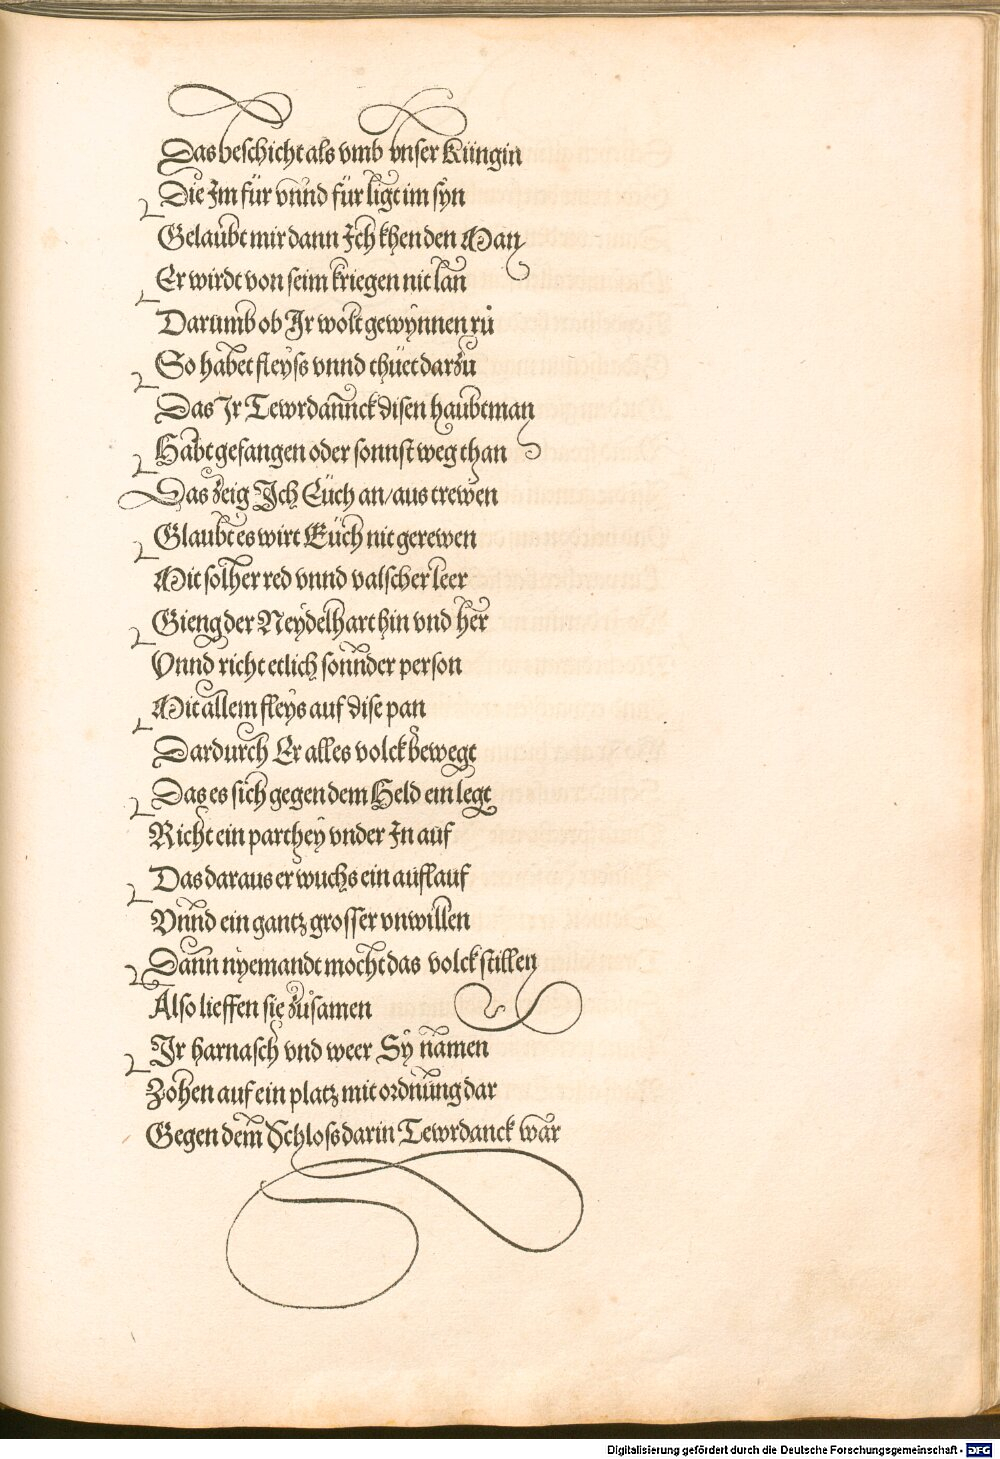 Das beschicht als vmb vnser Küngin
Die Im für vnnd für ligt im syn
Gelaubt mir dann Ich khen den Man
Er wirdt von seim kriegen nit lan
Darumb ob Ir wolt gewynnen rů
So habet fleyss vnnd thüet darzu
Das Ir Tewrdannck disen haubtman
Habt gefangen oder sonnst weg than
Das zeig Ich Eüch an/aus trewen
Glaubt es wirt Eüch nit gerewen
Mit solher red vnnd valscher leer
Gieng der Neydelhart hin vnd her
Vnnd richt etlich sonnder person
Mit allem fleys auf dise pan
Dardurch Er alles volck bewegt
Das es sich gegen dem Held ein legt
Richt ein parthey vnder In auf
Das daraus erwuchs ein auflauf
Vnnd ein gantz grosser vnwillen
Dann nyemandt mocht das volck stillen
Also lieffen sie zůsamen
Ir harnasch vnd weer Sy namen
Zohen auf ein platz mit ordnung dar
Gegen dem Schloss darin Tewrdanck war
Digitalisierung gefördert durch die Deutsche Forschungsgemeinschaft - DFG